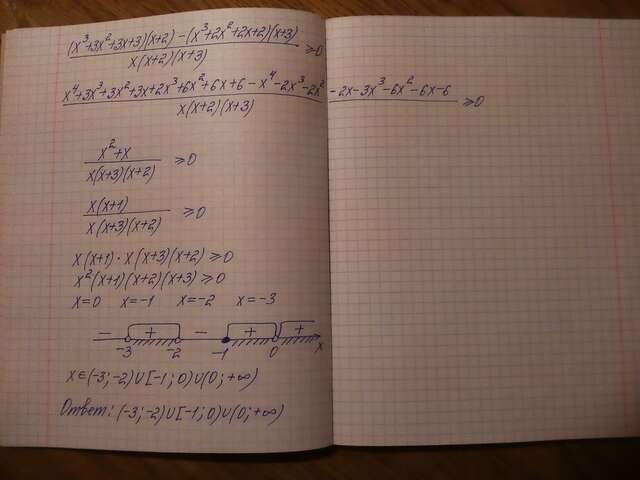 (x³+3x²+3x+3)(x+2) - (x³+2x²+2x+2)(x+3) / x(x+2)(x+3) ≥0
x⁴+3x³+3x²+3x+2x³+6x²+6x+6-x⁴-2x³-2x² -2x-3x³-6x²-6x-6 / x(x+2)(x+3) ≥0
x²+x / x(x+3)(x+2) ≥0
x(x+1) / x(x+3)(x+2) ≥0
x(x+1)·x(x+3)(x+2)≥0
x²(x+1)(x+2)(x+3)≥0
x=0 x=-1 x=-2 x=-3
- + - + +
-3 -2 -1 0 x
x∈(-3;-2)∪[-1;0)∪(0;+∞)
Ответ: (-3;-2)∪[-1;0)∪(0;+∞)